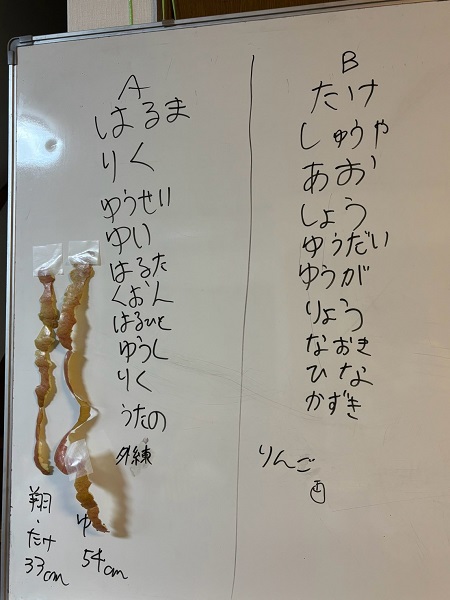 A
はるま
りく
ゆうせい
ゆい
はるた
くおん
はるひと
ゆうし
りく
うたの
外練
翔
・たけ
33cm
ゆ
54cm
B
たけ
しゅうや
あお
しょう
ゆうだい
ゆうが
りょう
なおき
ひな
かずき
りんご